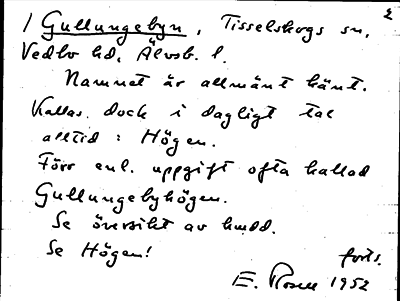 2
/ Gullungebyn, Tisselskogs sn,
Vedbo hd, Älvsb. l.
Namnet är allmänt känt.
Kallas dock i dagligt tal
alltid: Högen.
Förr enl. uppgift ofta kallad
Gullungebyhögen.
Se översikt av hmdd.
Se Högen!
forts.
E. Rosell 1952